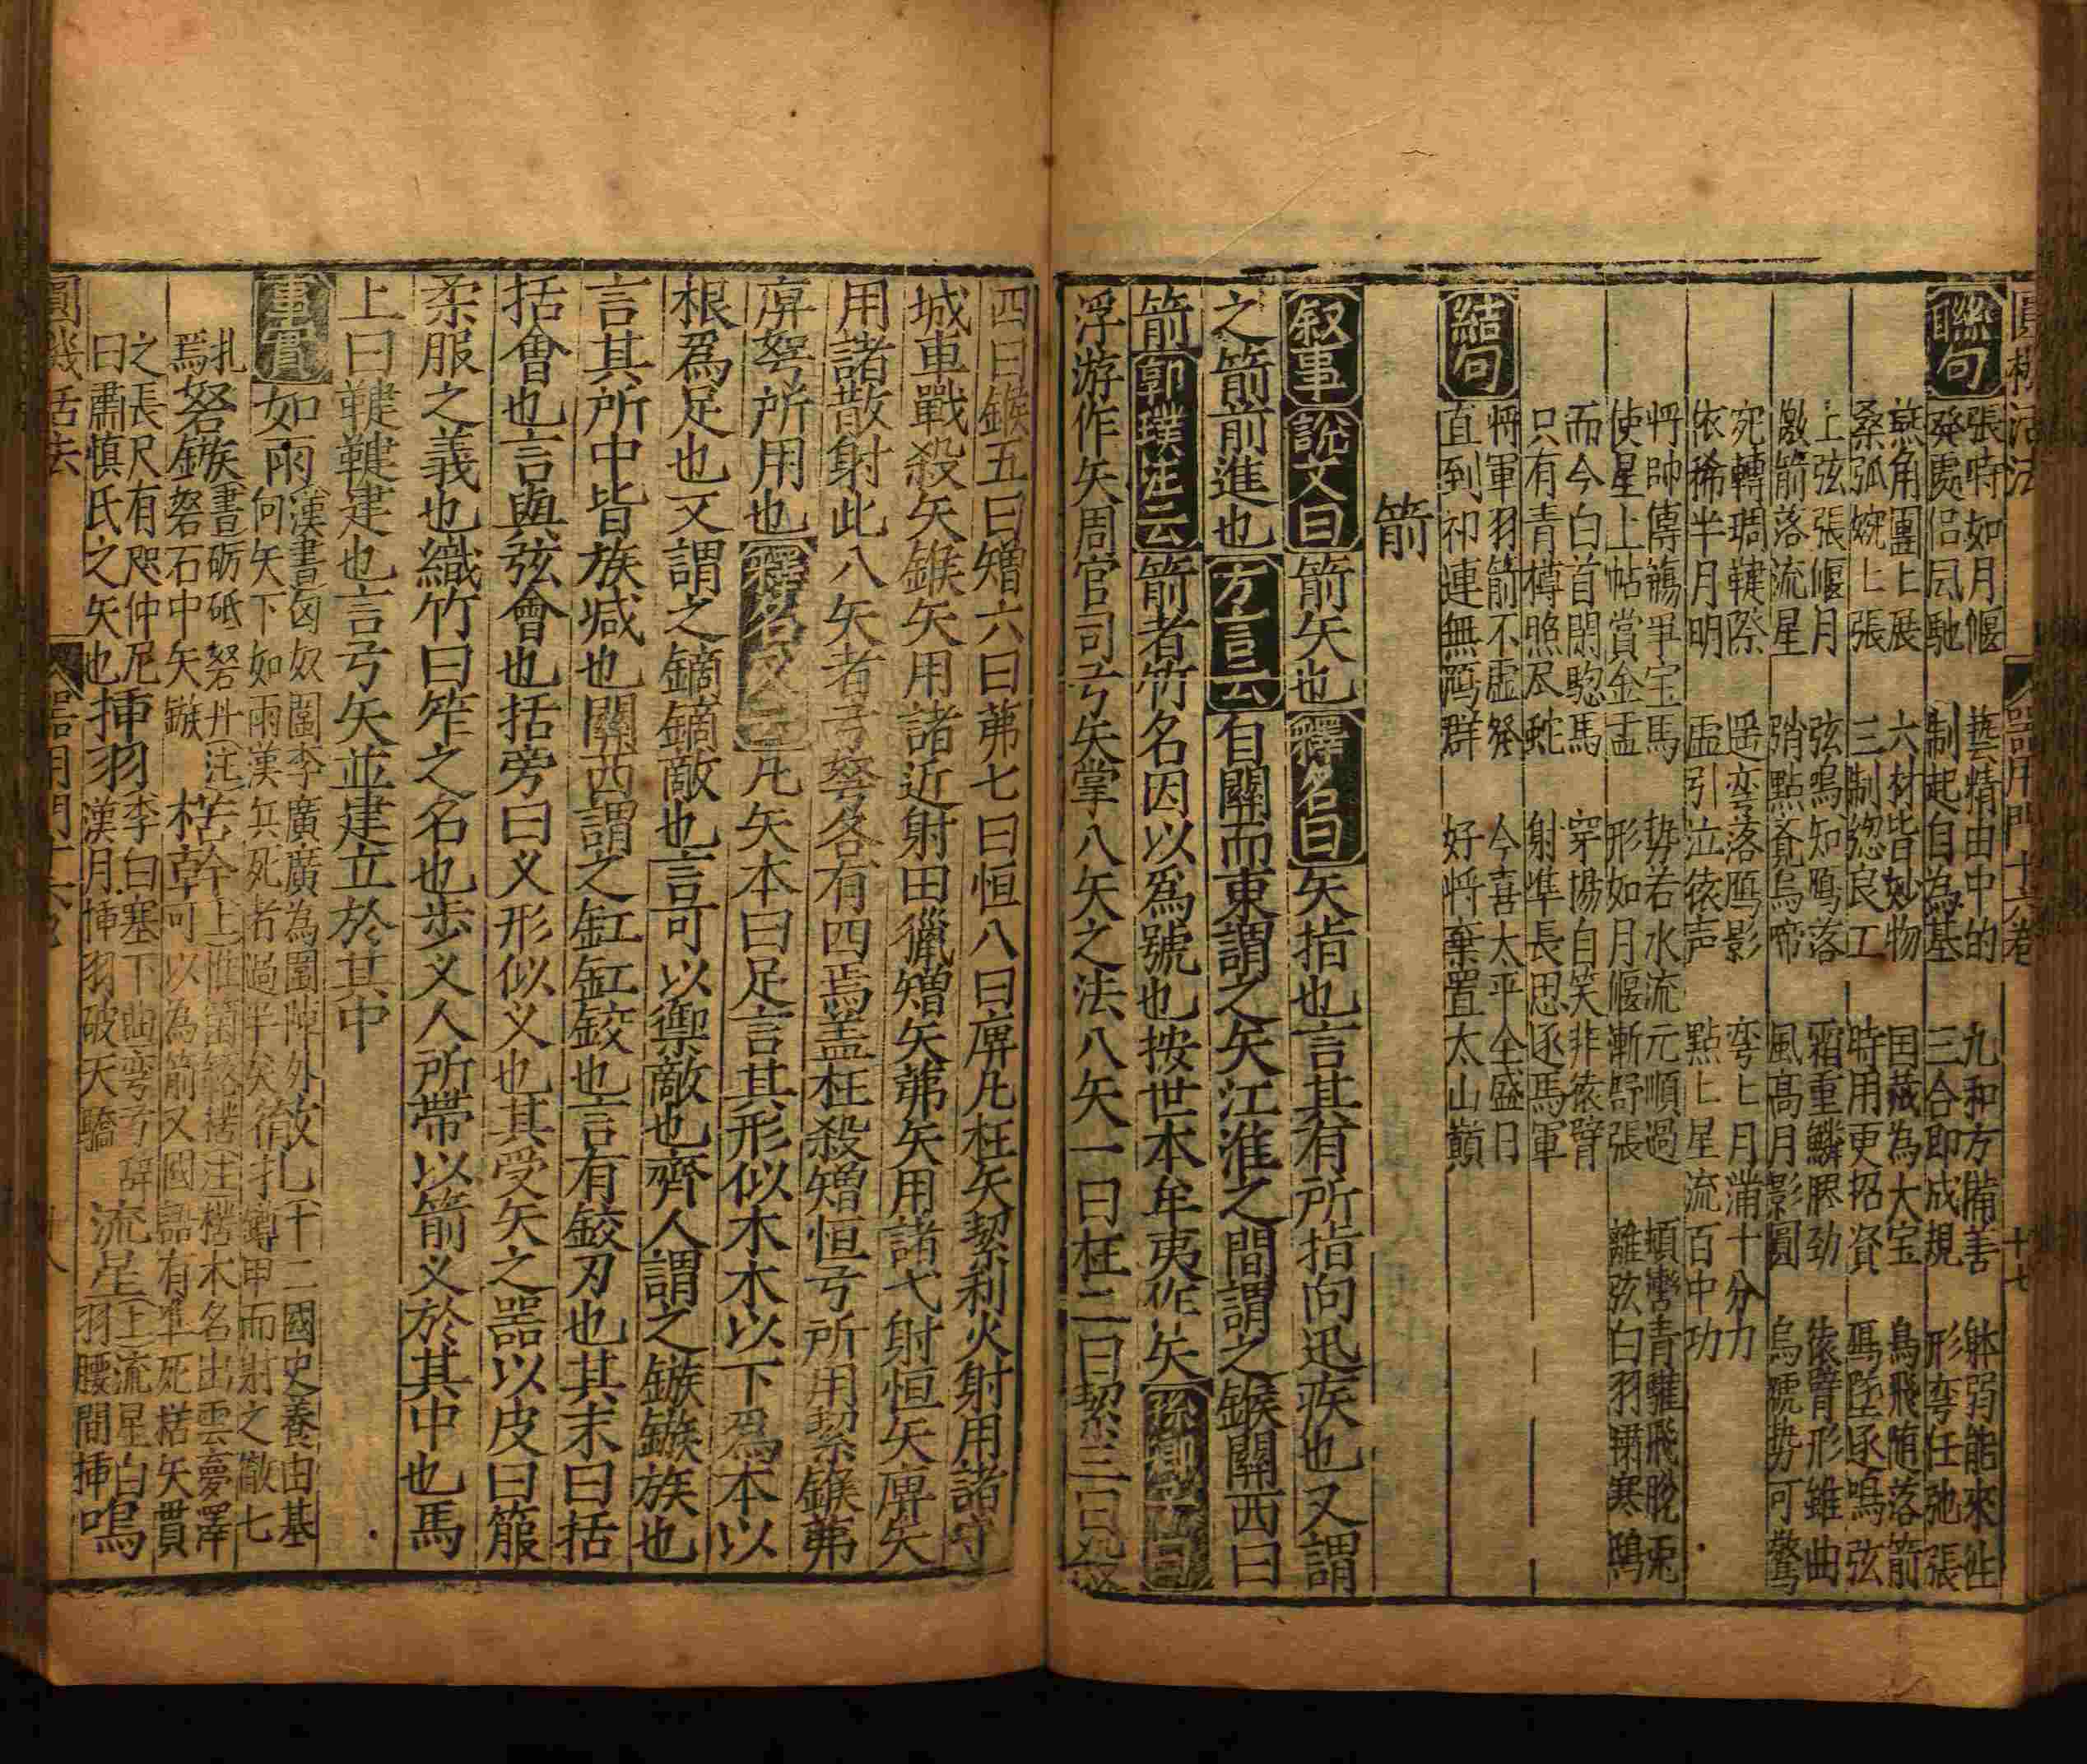 圓機活法 器用門十六卷 十七
聯句
張時如月偃 藝精由中的 九和方備善 躰弱能來往
發處侣风馳 制起自為基 三合即成規 形弯任弛張
角團〻展 六材皆妙物 囯藏為大宝 鳥飛随落箭
桑弧婉〻張 三制惣良工 時用更招資 鴈墜逐鳴弦
上弦張偃月 弦鳴知鴈落 霜重鱗膠劲 依臂形雖曲
激箭落流星 弰點竟烏啼 風高月影圓 烏號势可驚
宛轉琱鞬際 遥弯落鴈影 弯〻月滿十分力
依稀半月明 虚引泣依声 點〻星流百中功
将帥傳觴爭宝馬 势若水流元順過 頓轡青騅飛脫兎
使星上帖賞金盂 形如月偃漸舒張 離弦白羽寒鴟
而今白首閒骢馬 穿楊自笑非依臂
只有青樽照尽蛇 射隼長思逐馬軍
結句
将軍羽箭不虚發 今喜太平全盛日
直到祁連無鴈群 好将棄置太山巔
箭
叙事 說文曰箭矢也釋名曰矢指也言其有所指向迅疾也又謂
之箭前進也方言云自關而東謂之矢江淮之間謂之鍭關西曰
箭郭璞注云箭者竹名因以爲號也按世本牟夷作矢孫卿子曰
浮游作矢周官司弓矢掌八矢之法八矢一曰枉二曰絜三曰殺
四曰鍭五曰矰六曰茀七曰恒八曰庳凡枉矢絜利火射用諸守
城車戰殺矢鍭矢用諸近射田獵矰矢茀矢用諸弋射恒矢庳矢
用諸散射此八矢者弓弩各有四焉盖枉殺矰恒弓所用絜鍭茀
庳弩所用也釋名又云凡矢本曰足言其形似木木以下爲本以
根爲足也又謂之鏑鏑敵也言可以禦敵也齊人謂之鏃鏃族也
言其所中皆族滅也關西謂之釭釭鉸也言有鉸刃也其末曰括
括會也言與弦會也括旁曰义形似义也其受矢之器以皮曰箙
柔服之義也織竹曰笮之名也步义人所帶以箭义於其中也馬
上曰鞬鞬建也言弓矢並建立於其中
事實
如雨 漢書匈奴圍李廣廣為圜陣外向矢下如雨漢兵死者過半矣 徹七札 十二國史養由基蹲甲而射之徹七札焉
砮鏃 書砺砥砮丹注砮石中矢鏃 楛幹 上惟箘簵楛注楛木名出雲夢澤可以為箭又國語有隼死楛矢貫之長尺有咫仲尼曰肅慎氏之矢也
揷羽 李白塞下曲弯弓辞漢月揷羽破天驕 流星 上流星白羽腰間揷 鳴
圓機活法 器用門十六卷 十八